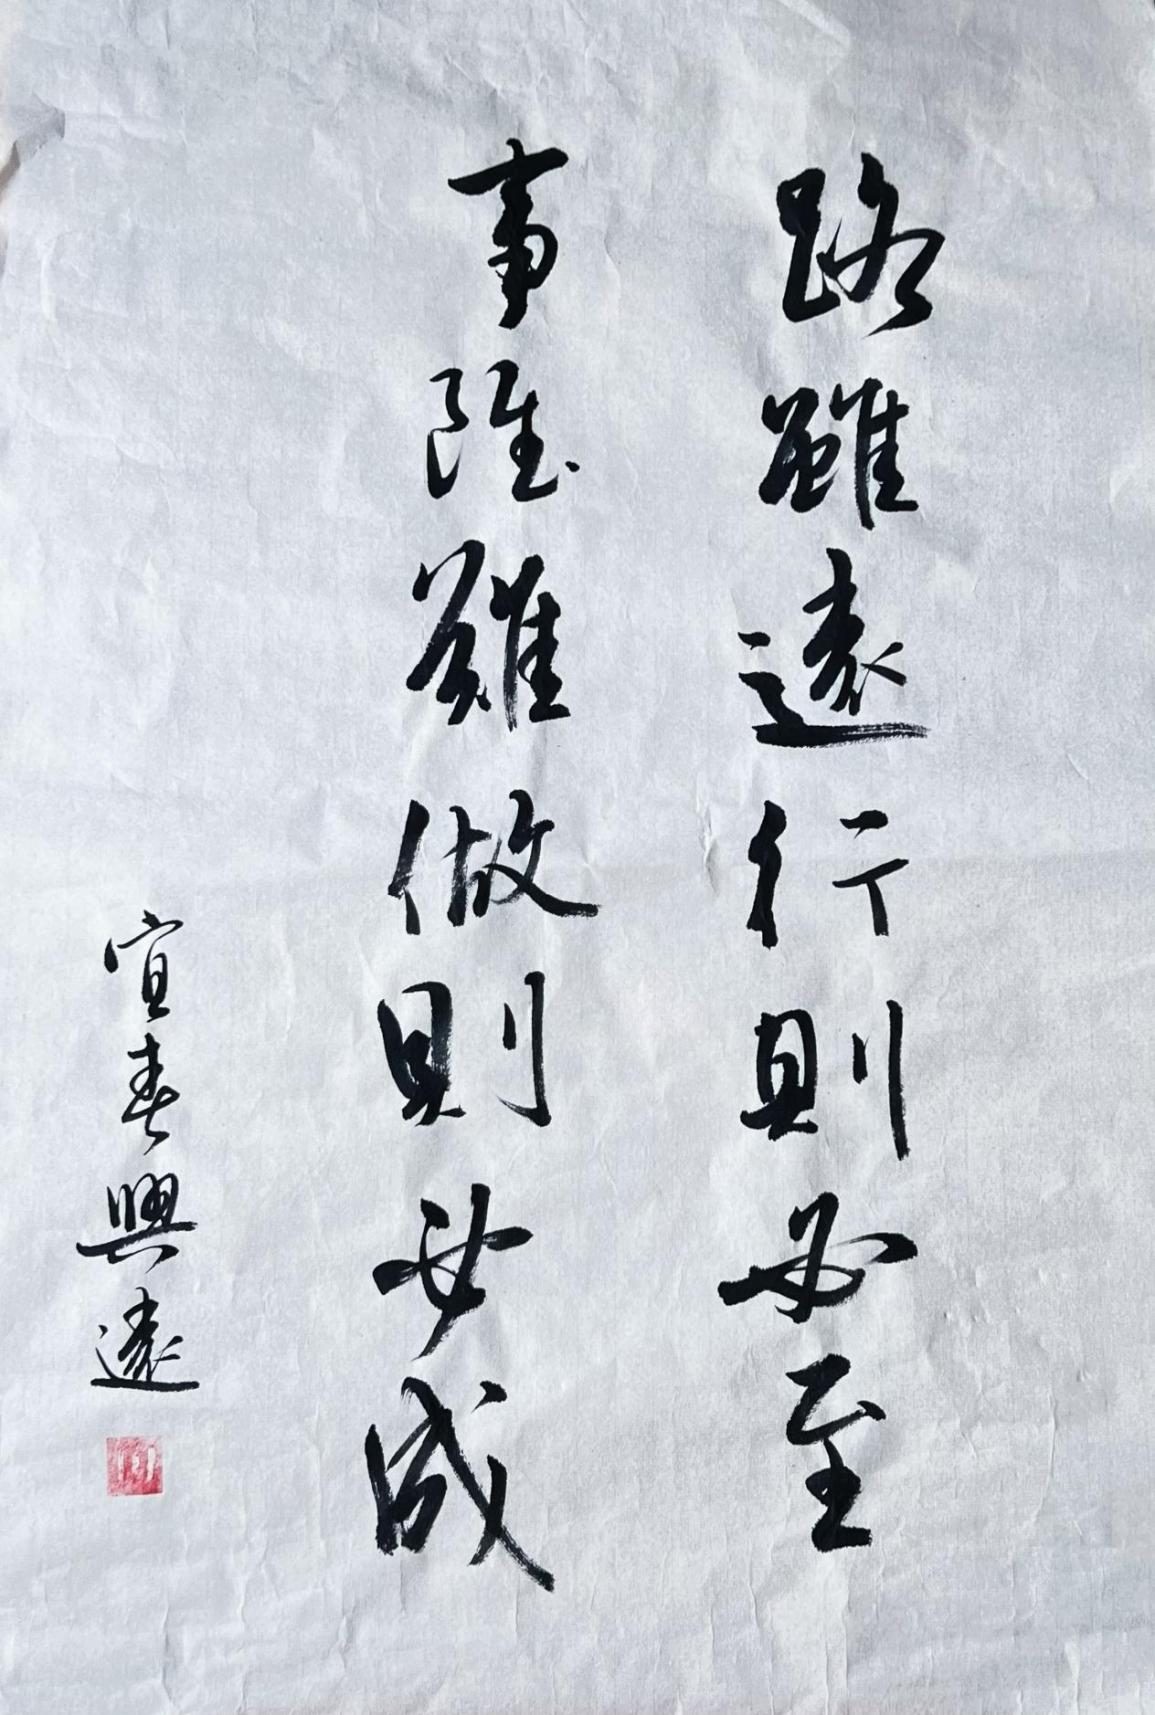 路雖遠行則必至
事雖難做則必成
宜春興遠